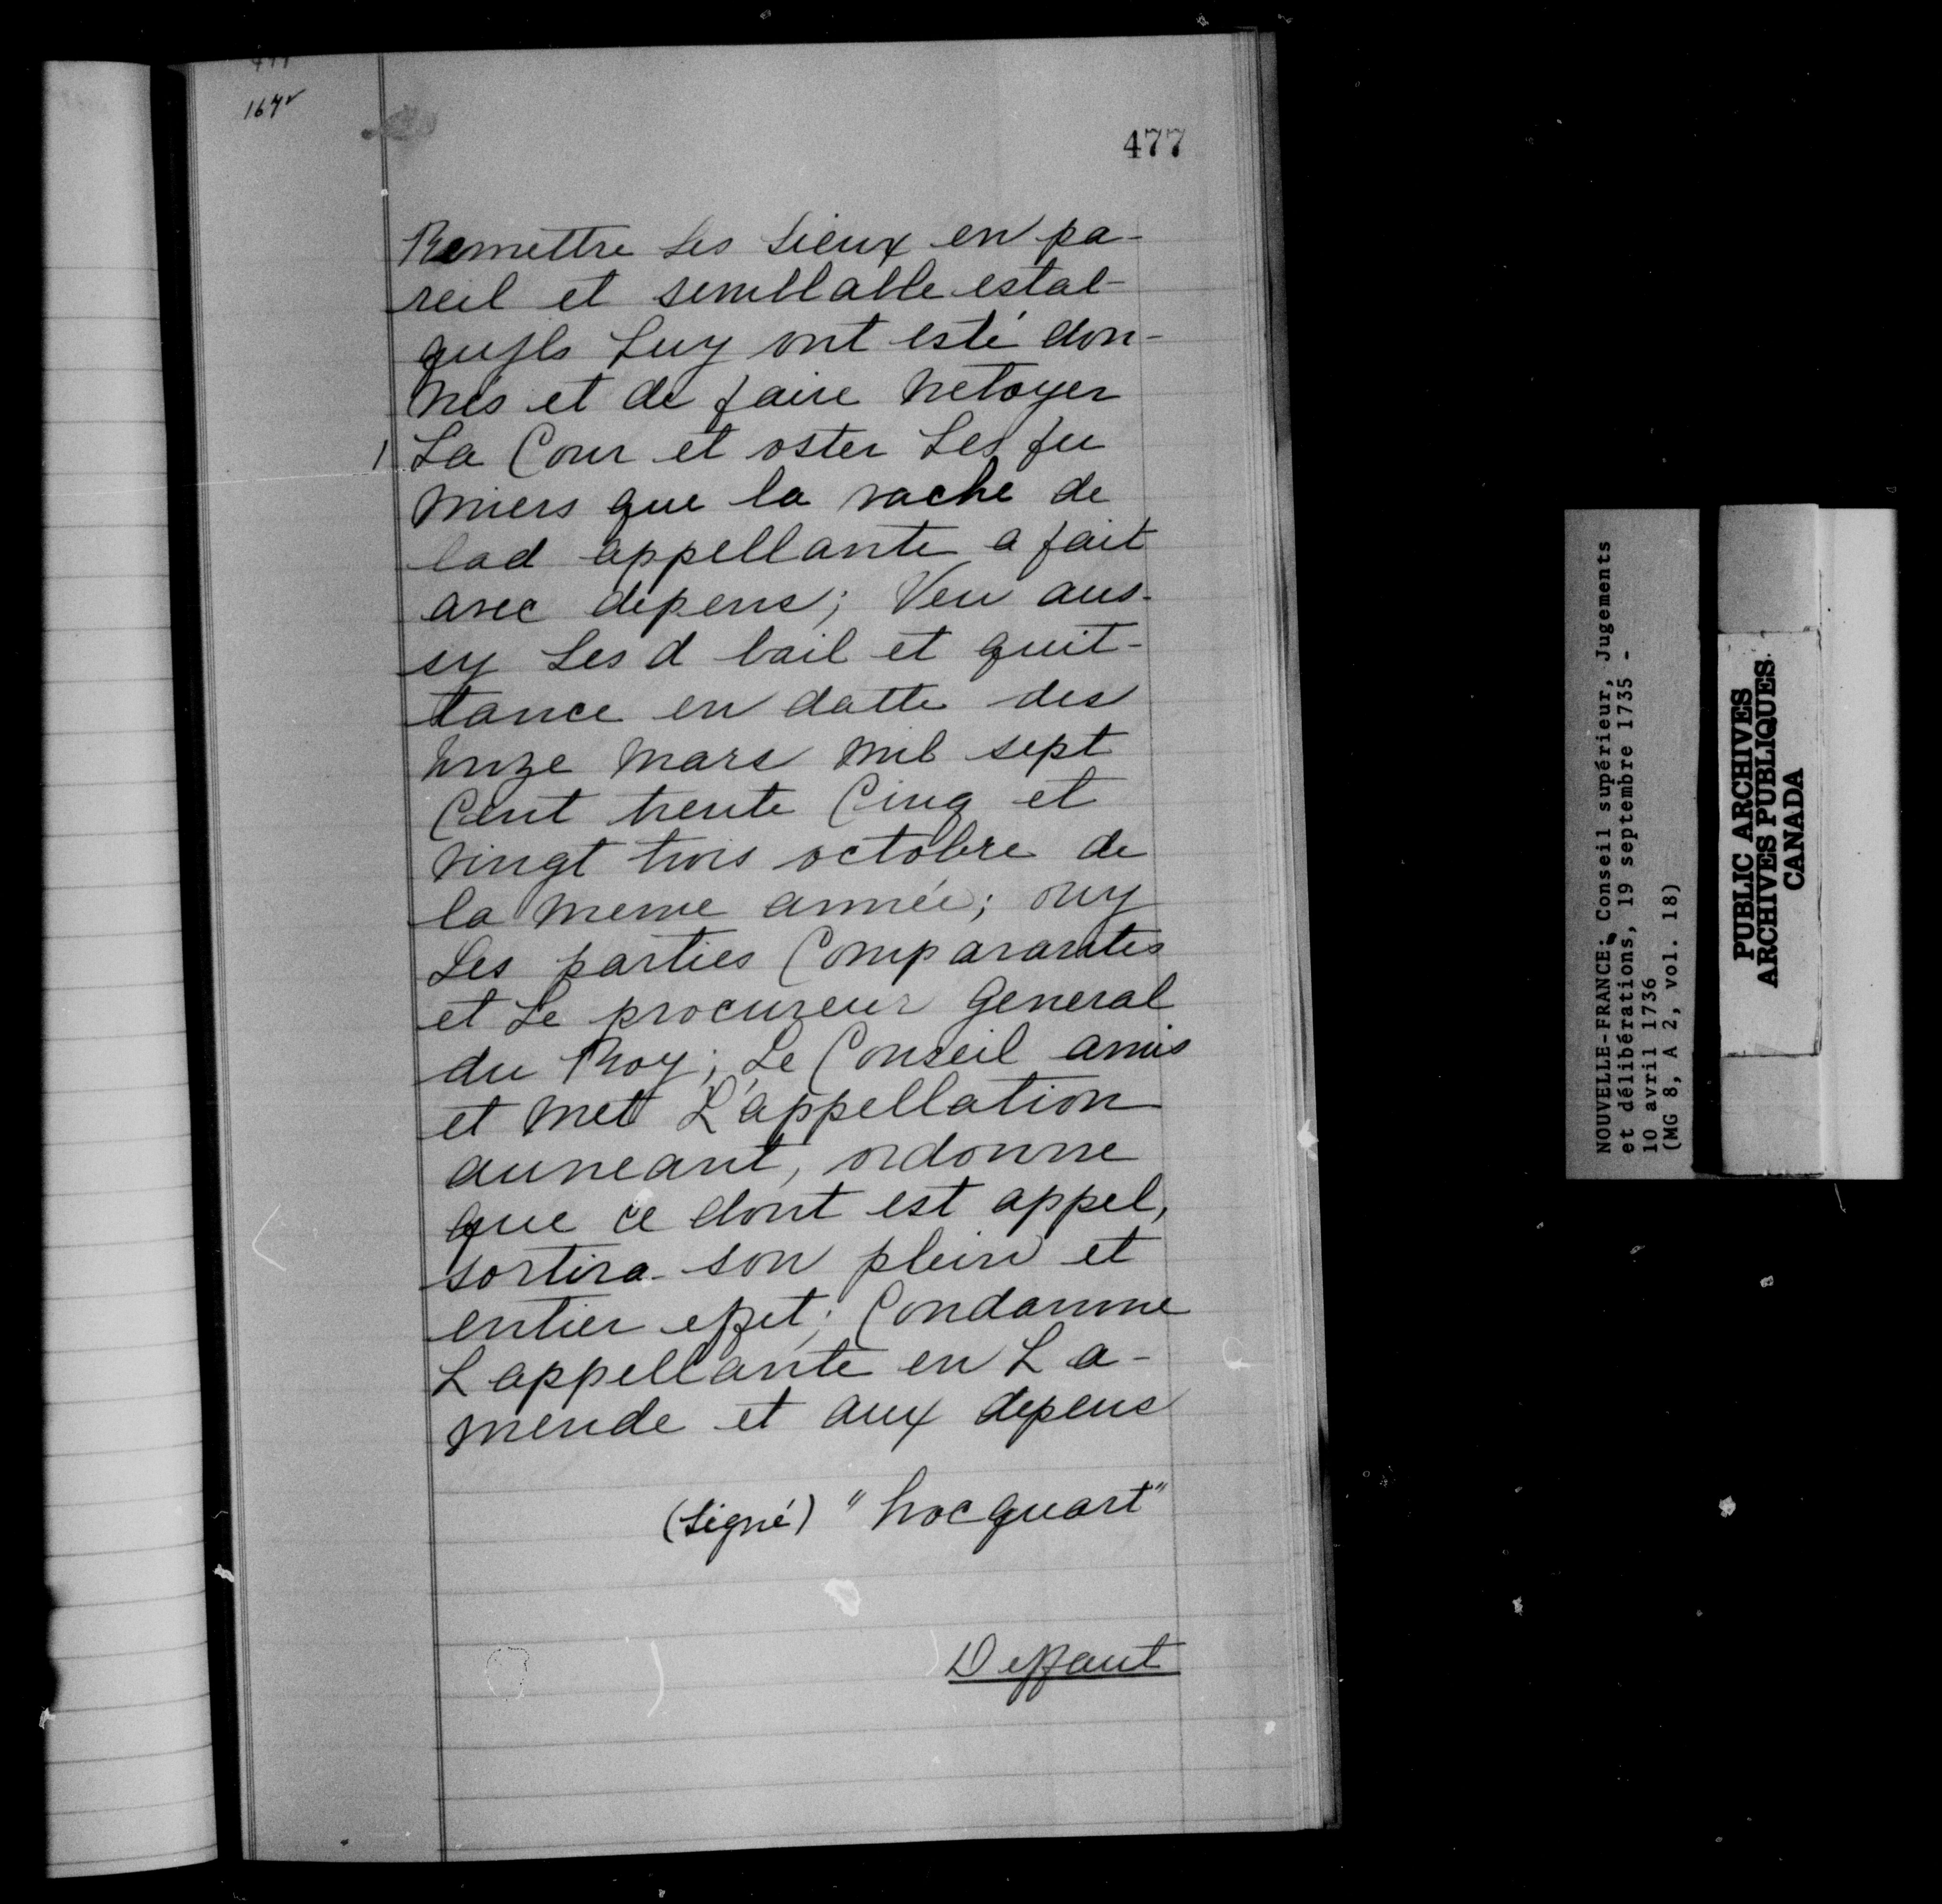 167v
477
Remettre Les Lieux en pa-
reil et semblable estat
qu'jls Luy ont esté don-
nés et de faire netoyer
La Cour et oster Les fu
miers que la vache de
lad appellante a fait
avec depens; Veu aus-
sy Les d bail et quit-
tance en datte des
unze mars mil sept
Cent trente Cinq et
vingt trois octobre de
la meme année; ouy
Les parties Comparantes
et Le procureur General
du Roy; Le Conseil amis
et met L'appellation
auneant, ordonne
que ce dont est appel,
sortira son plein et
entier effet; Condamne
L appellante en L a-
mende et aux depens
(signé) "hocquart"
Deffaut
NOUVELLE-FRANCE: Conseil supérieur, Jugements
et délibérations, 19 septembre 1735 -
10 avril 1736
(MG 8, A 2, vol. 18)
PUBLIC ARCHIVES
ARCHIVES PUBLIQUES
CANADA